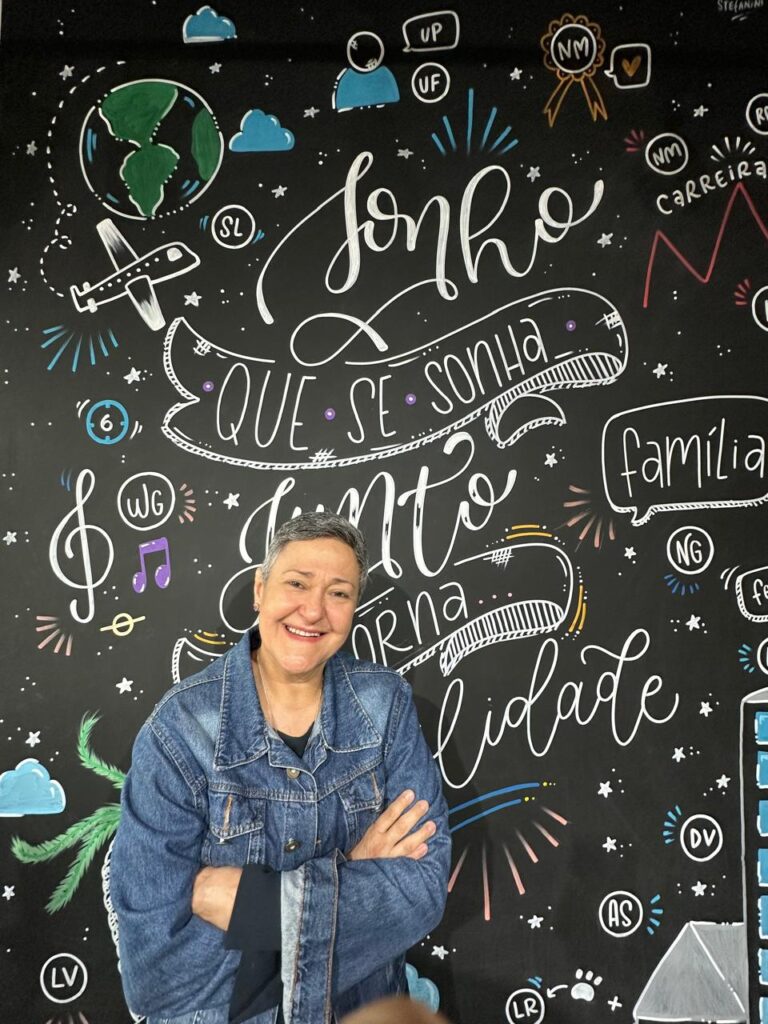 STEFANINI
UP
UF
NM
NM
CARREIRA
SL
Sonho
QUE • SE • SONHA
6
Junto
família
WG
NG
ORNA...
lidade
DV
AS
LV
LR